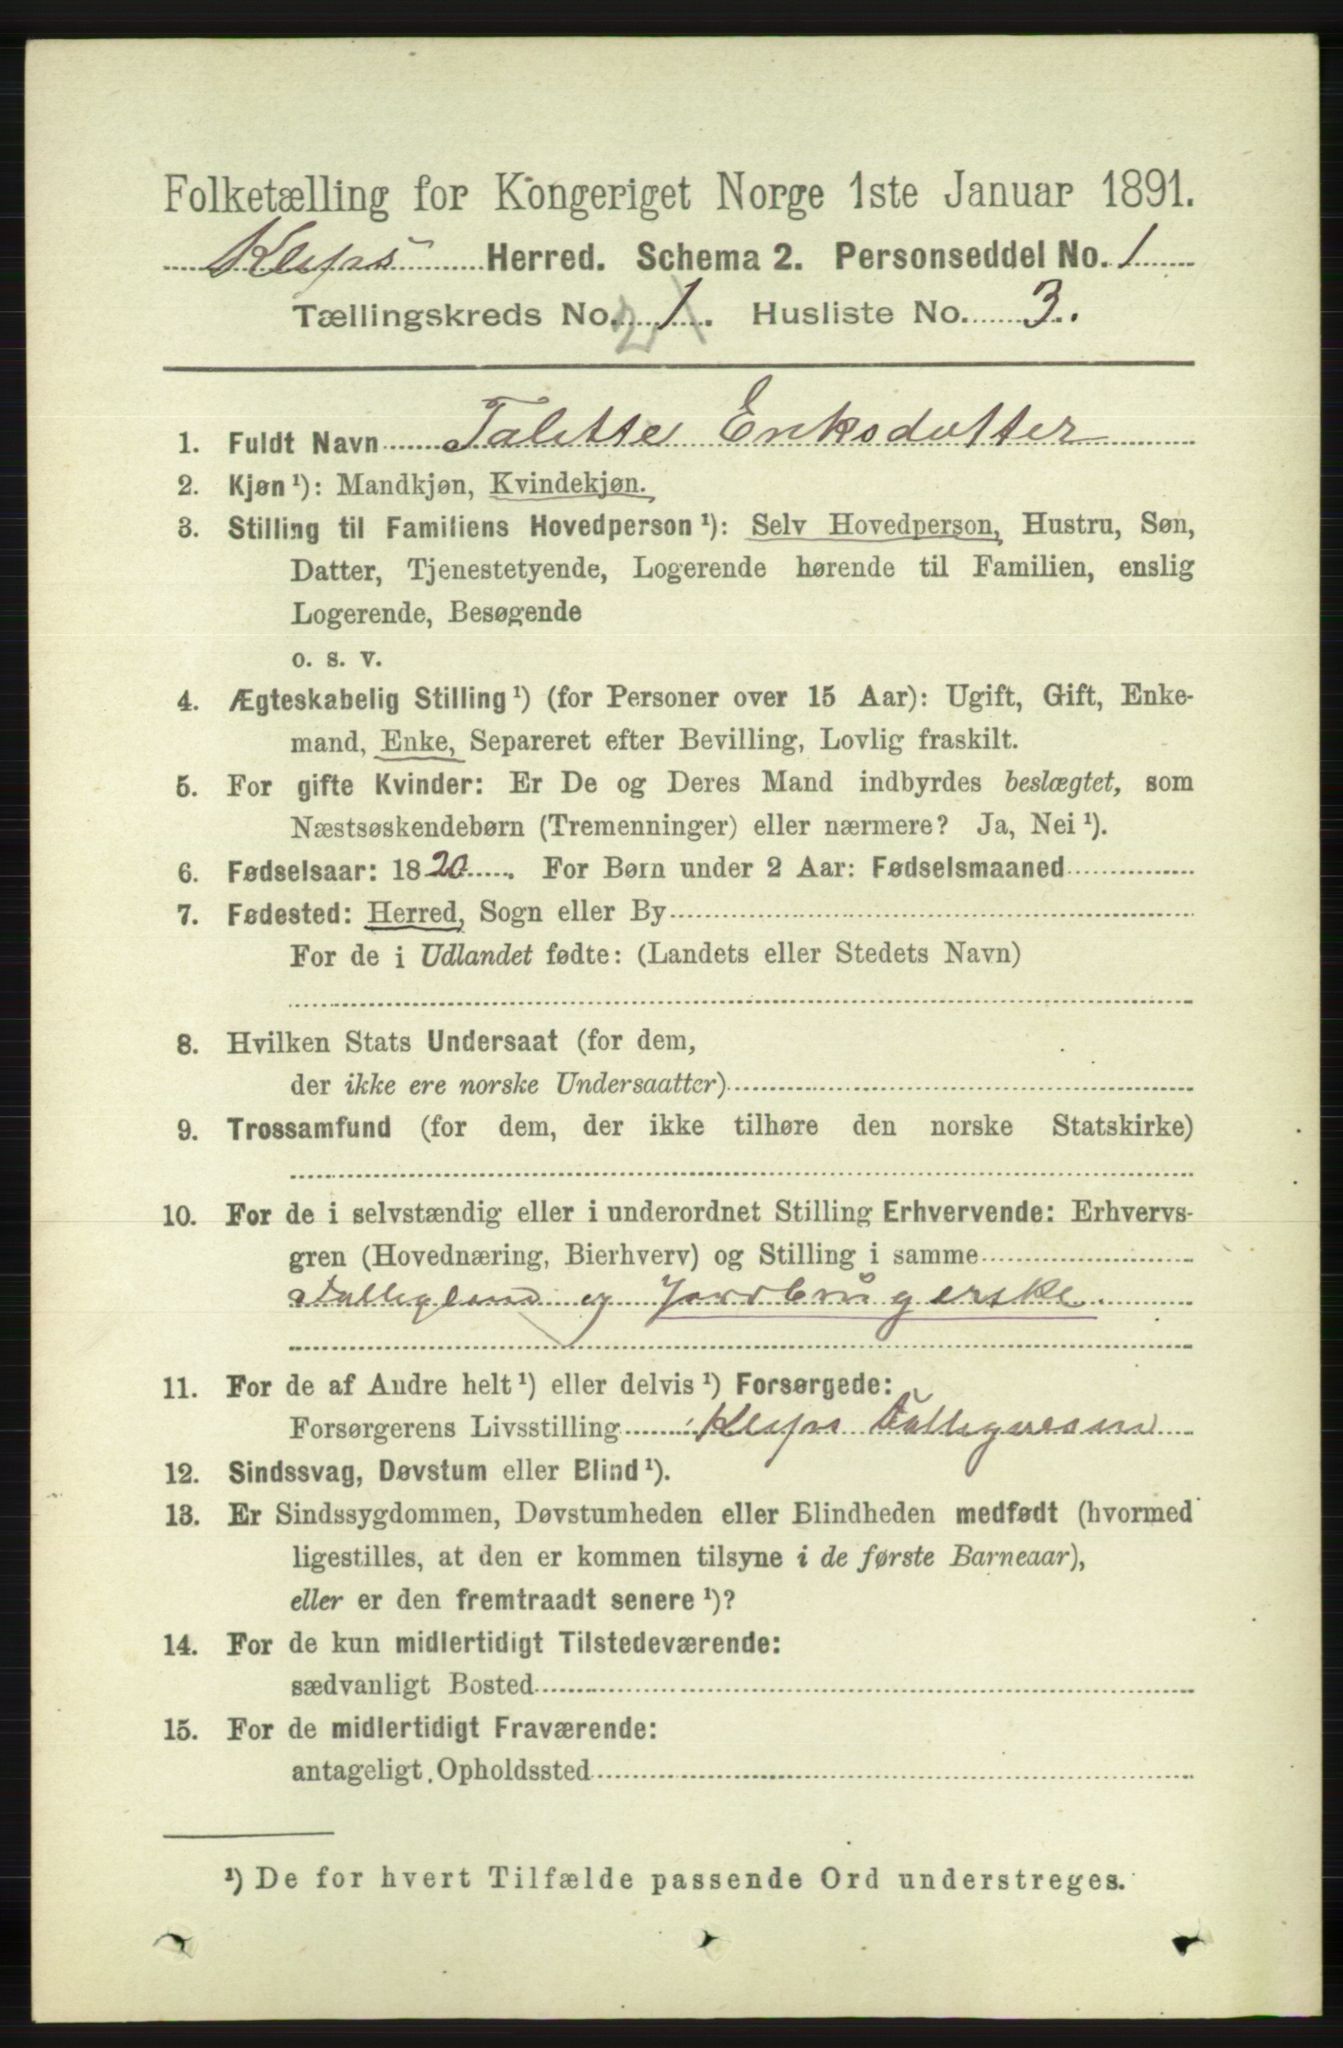 Folketælling for Kongeriget Norge 1ste Januar 1891.
Kleps Herred. Schema 2. Personseddel No. 1
Tællingskreds No. 1. Husliste No. 3.
2
1. Fuldt Navn Talette Eriksdatter
2. Kjøn ¹): Mandkjøn, Kvindekjøn.
3. Stilling til Familiens Hovedperson ¹): Selv Hovedperson, Hustru, Søn,
Datter, Tjenestetyende, Logerende hørende til Familien, enslig
Logerende, Besøgende
o. s. v.
4. Ægteskabelig Stilling ¹) (for Personer over 15 Aar): Ugift, Gift, Enke-
mand, Enke, Separeret efter Bevilling, Lovlig fraskilt.
5. For gifte Kvinder: Er De og Deres Mand indbyrdes beslægtet, som
Næstsøskendebørn (Tremenninger) eller nærmere? Ja, Nei ¹).
6. Fødselsaar: 1820. For Børn under 2 Aar: Fødselsmaaned
7. Fødested: Herred, Sogn eller By
For de i Udlandet fødte: (Landets eller Stedets Navn)
8. Hvilken Stats Undersaat (for dem,
der ikke ere norske Undersaatter)
9. Trossamfund (for dem, der ikke tilhøre den norske Statskirke)
10. For de i selvstændig eller i underordnet Stilling Erhvervende: Erhvervs-
gren (Hovednæring, Bierhverv) og Stilling i samme
og Jordbrugerske.
11. For de af Andre helt ¹) eller delvis ¹) Forsørgede:
Forsørgerens Livsstilling Kleps
12. Sindssvag, Døvstum eller Blind ¹).
13. Er Sindssygdommen, Døvstumheden eller Blindheden medfødt (hvormed
ligestilles, at den er kommen tilsyne i de første Barneaar),
eller er den fremtraadt senere ¹)?
14. For de kun midlertidigt Tilstedeværende:
sædvanligt Bosted
15. For de midlertidigt Fraværende:
antageligt Opholdssted
¹) De for hvert Tilfælde passende Ord understreges.